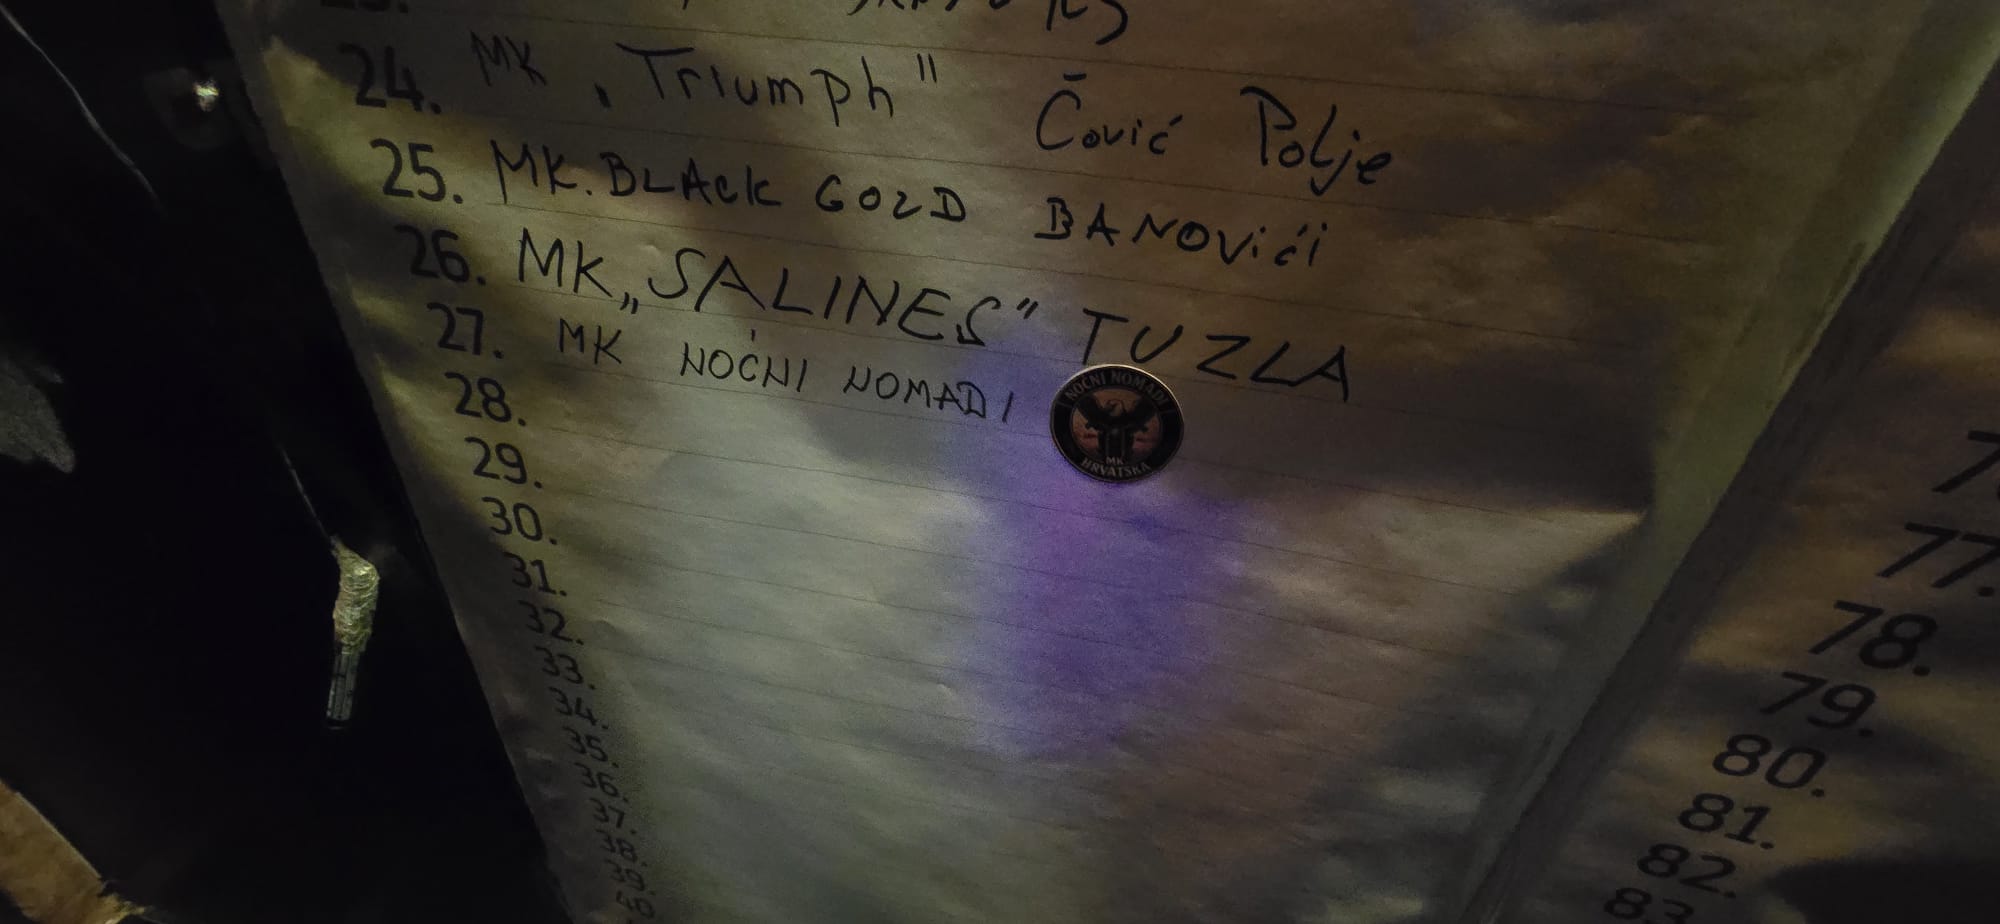 24. MK „Triumph" Čović Polje
25. MK. BLACK GOLD BANOVIĆI
26. MK „SALINES" TUZLA
27. MK NOĆNI NOMADI
NOĆNI NOMADI
MK
HRVATSKA
28.
29.
30.
31.
32.
33.
34.
35.
36.
37.
38.
39.
40.
77.
78.
79.
80.
81.
82.
83.